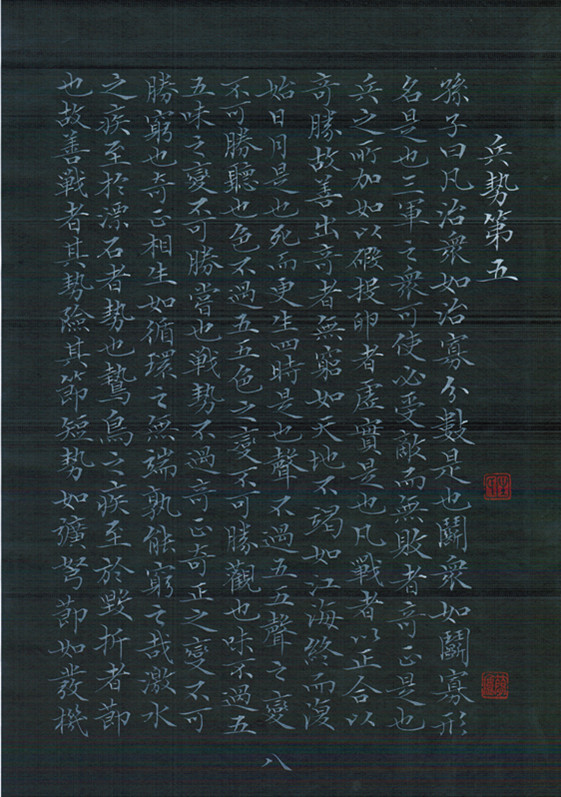 兵勢第五
孫子曰凡治衆如治寡分數是也鬭衆如鬭寡形
名是也三軍之衆可使必受敵而無敗者奇正是也
兵之所加如以碬投卵者虛實是也凡戰者以正合以
奇勝故善出奇者無窮如天地不竭如江海終而復
始日月是也死而更生四時是也聲不過五五聲之變
不可勝聽也色不過五五色之變不可勝觀也味不過五
五味之變不可勝嘗也戰勢不過奇正奇正之變不可
勝窮也奇正相生如循環之無端孰能窮之哉激水
之疾至於漂石者勢也鷙鳥之疾至於毀折者節
也故善戰者其勢險其節短勢如彍弩節如發機
八